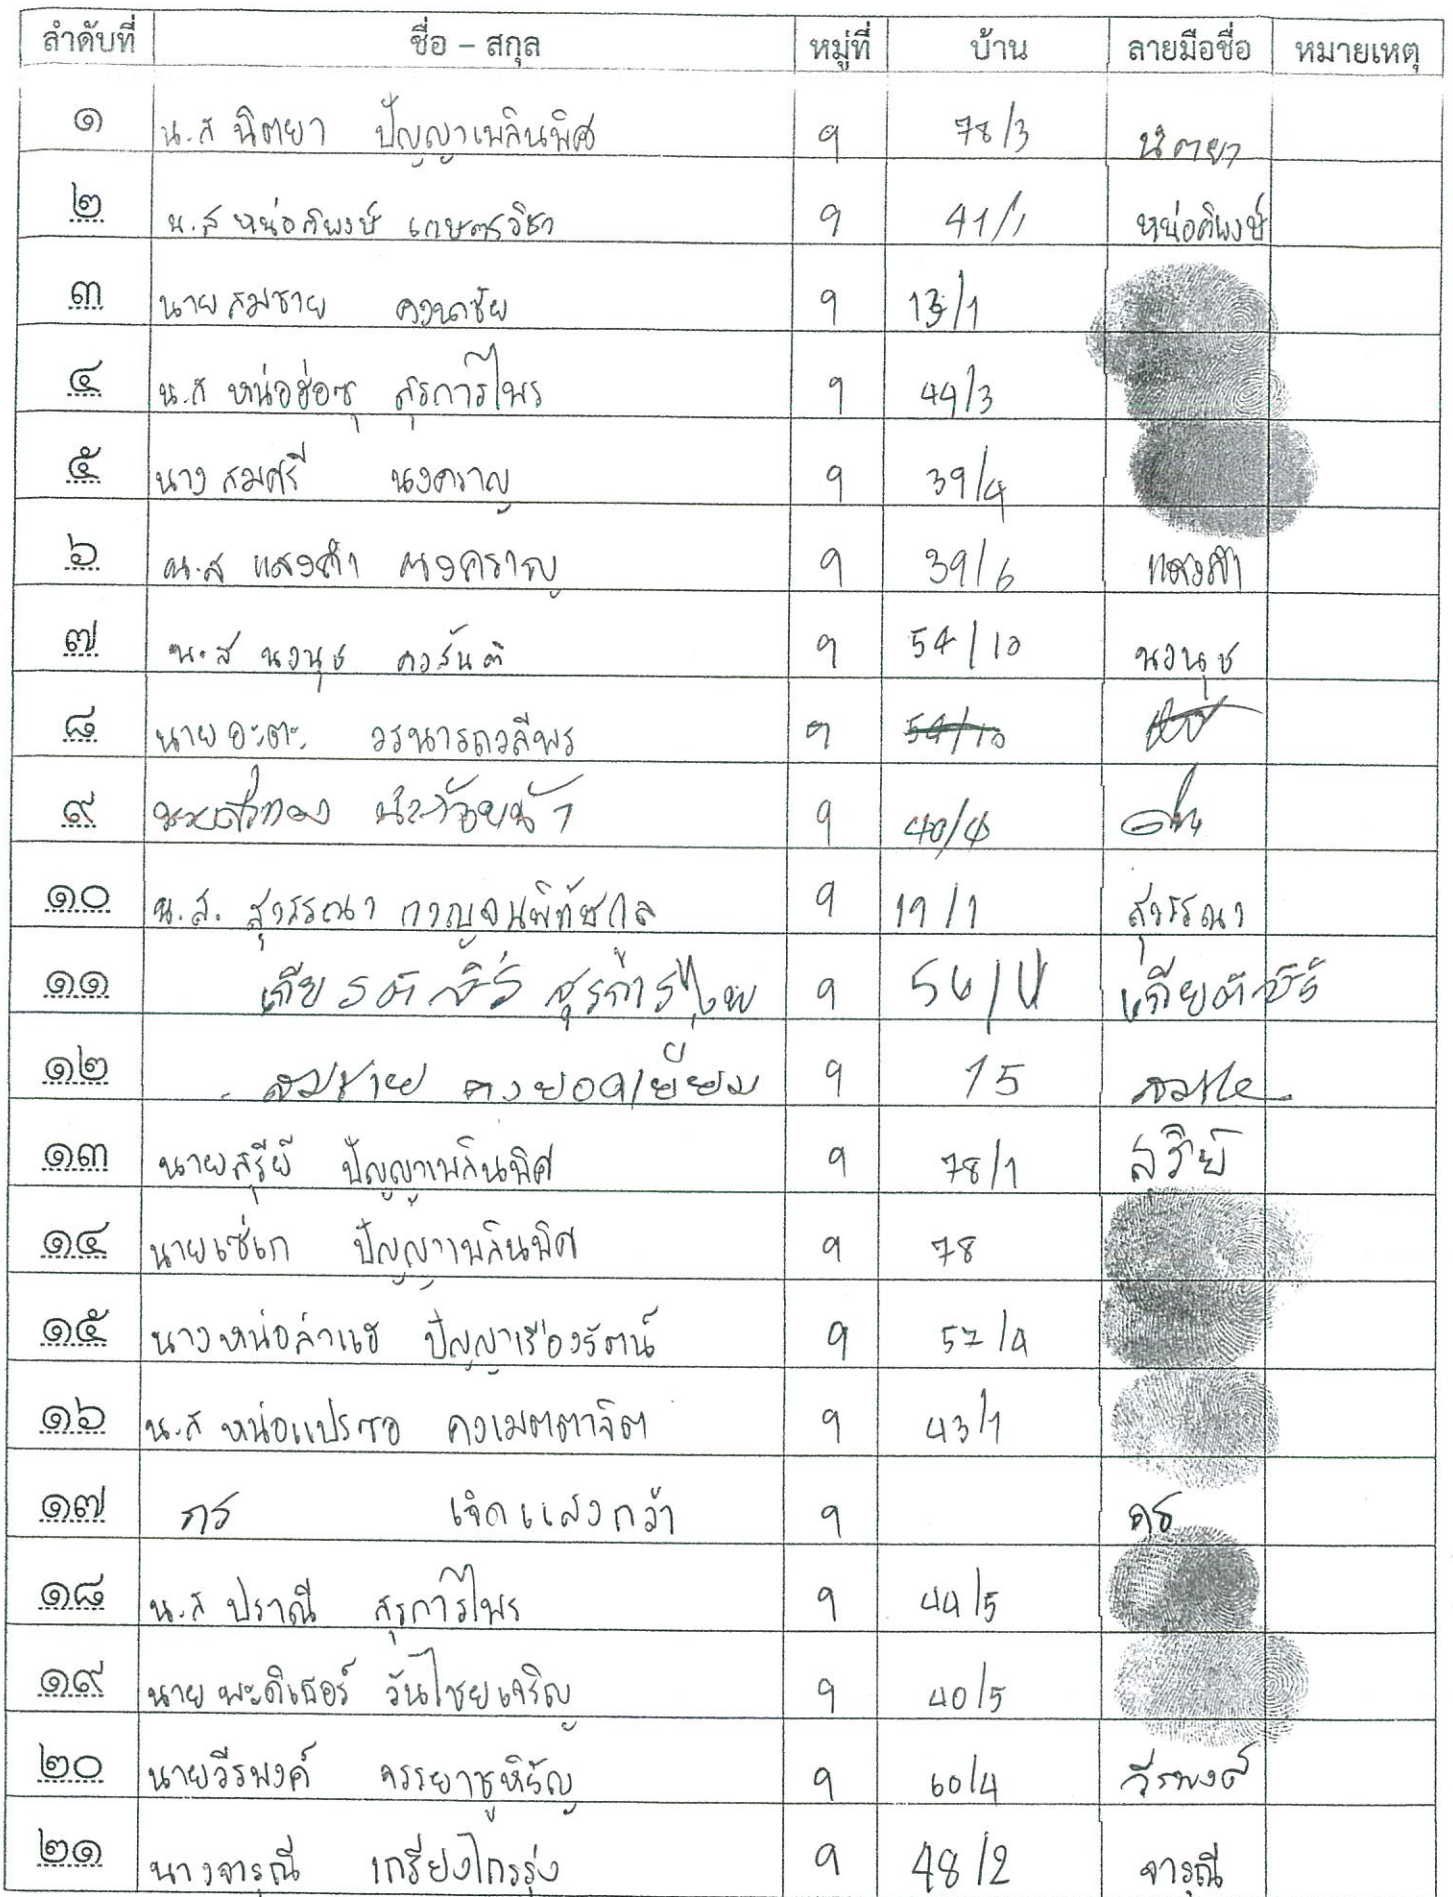 ลำดับที่ ชื่อ – สกุล หมู่ที่ บ้าน ลายมือชื่อ หมายเหตุ
๑ น.ส นิตยา ปัญญาเพลินพิศ 9 78/3 นิตยา
๒ น.ส หน่อคิพงษ์ เกษตรวิชา 9 41/1 หน่อคิพงษ์
๓ นาย สมชาย คงนาชัย 9 13/1
๔ น.ส หน่อฮ่อซุ สุรการไพร 9 44/3
๕ นาง สมศรี นงคราญ 9 39/4
๖ น.ส แสงคำ นงคราญ 9 39/6 แสงคำ
๗ น.ส นงนุช คงสันติ 9 54/10 นงนุช
๘ นาย อะตะ วรนารถวลีพร 9
๙ 9 40/4
๑๐ น.ส. สุวรรณา กาญจนพิทักษ์กุล 9 19/1 สุวรรณา
๑๑ เกียรติศิริ สุรการไพ 9 56/
๑๒ สมชาย คงยอดเยี่ยม 9 15
๑๓ นายสุรีย์ ปัญญาเพลินพิศ 9 78/1 สุรีย์
๑๔ นายเซ่เก ปัญญาเพลินพิศ 9 78
๑๕ นาง หน่อล่าแฮ ปัญญาเรืองรัตน์ 9 57/4
๑๖ น.ส หน่อแปรซอ คงเมตตาจิต 9 43/1
๑๗ เจิดแสงกว้า 9
๑๘ น.ส ปราณี สุรการไพร 9 44/5
๑๙ นาย พะดิเธอร์ วันไชยเจริญ 9 40/5
๒๐ นายวีรพงศ์ จรรยาชูหิรัญ 9 60/4 วีรพงศ์
๒๑ นางจารุณี เกรียงไกรรุ่ง 9 48/2 จารุณี